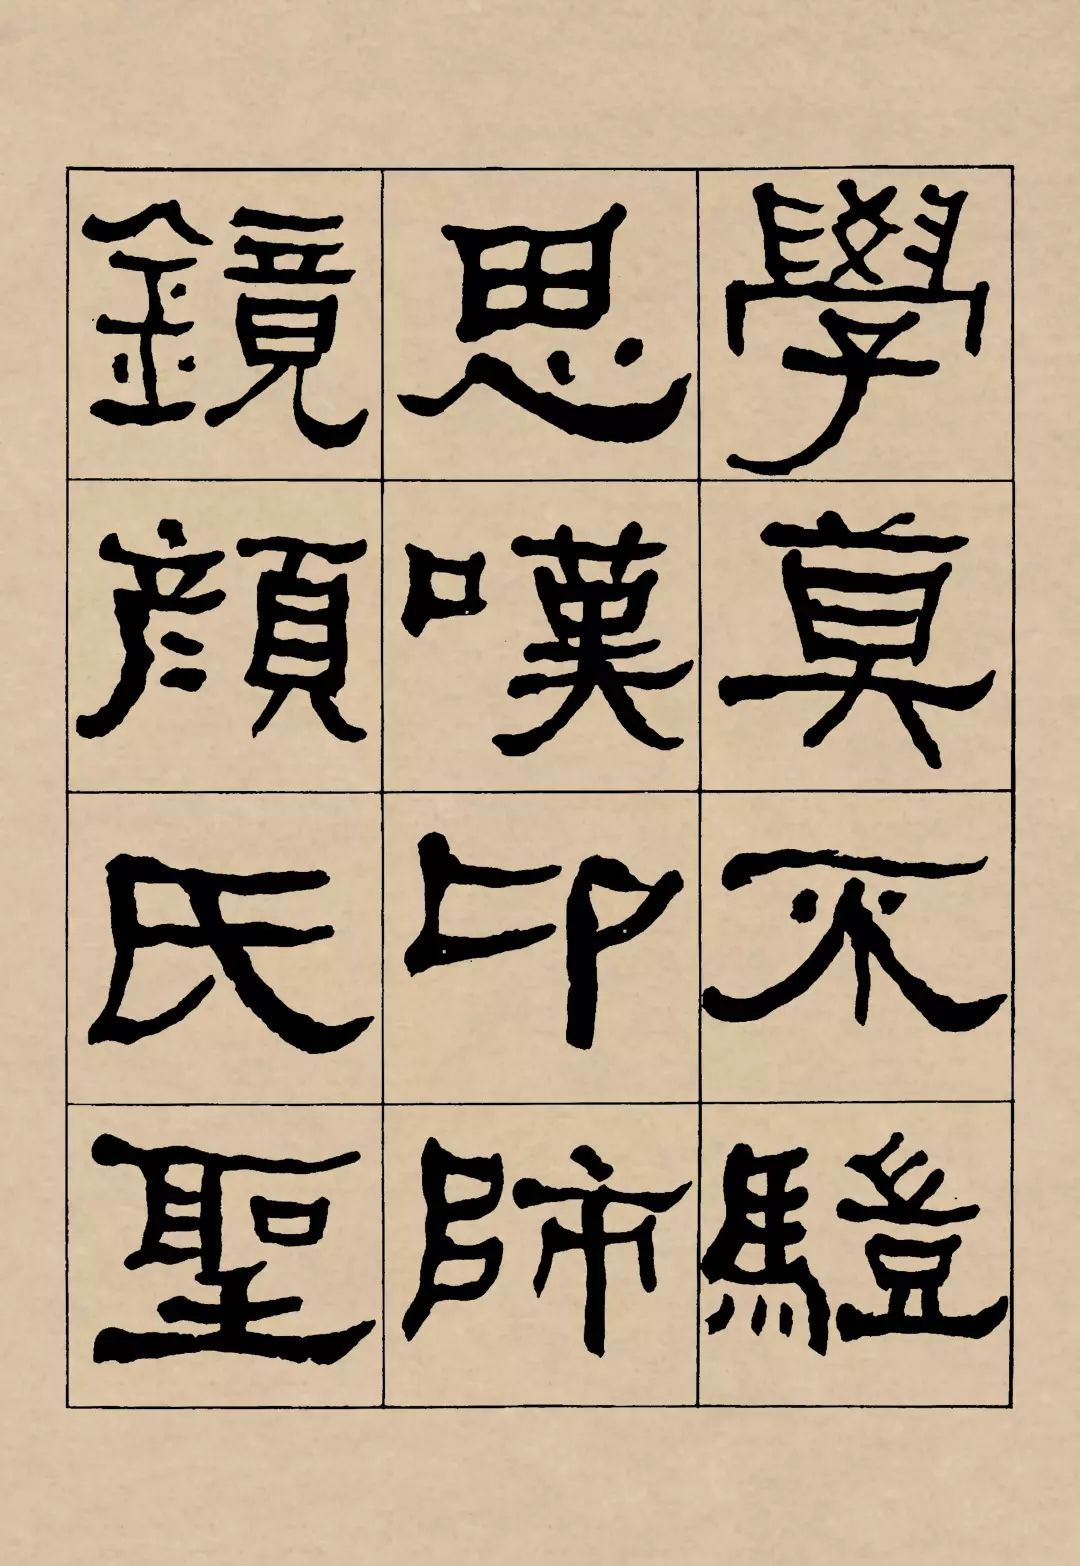 學莫不驥
思嘆卬師
鏡顏氏聖